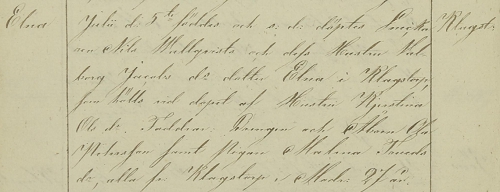 Elna Julii d: 5te föddes och s: d: döptes
Nils Wallqvists och dess Hustru Val-
borg Jacobs dr dotter Elna i Klagstorp,
som hölts vid dopet af Hustru Kjerstina
Ols dr. Faddrar: Drengen och
Petersson samt Pigan Malena Trueds
dr, alla fr. Klagstorp, Modr: 27 år.
Klagst: